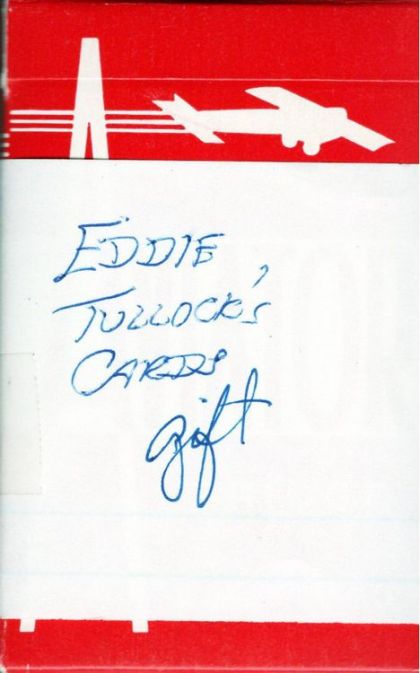 EDDIE
TULLOCK'S
CARDS
gift